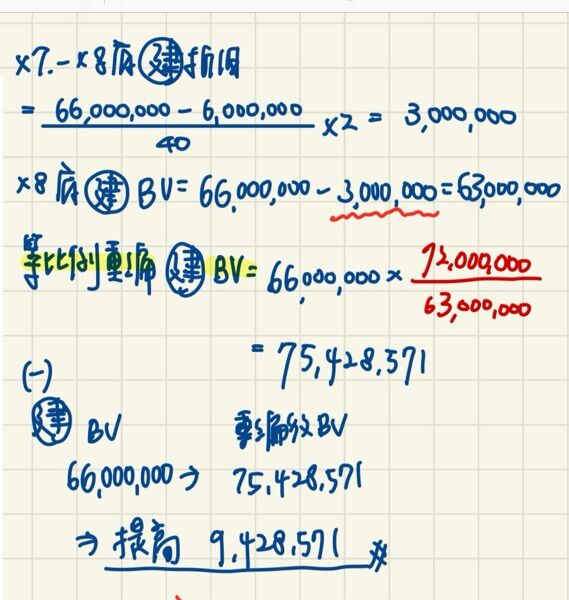 x7.-x8底 建 折旧
= 66,000,000 - 6,000,000 / 40 x2 = 3,000,000
x8底 建 BV= 66,000,000 - 3,000,000 = 63,000,000
等比例重編 建 BV= 66,000,000 x 72,000,000 / 63,000,000
= 75,428,571
(一)
建 BV 重編後BV
66,000,000 → 75,428,571
⇒ 提高 9,428,571 #